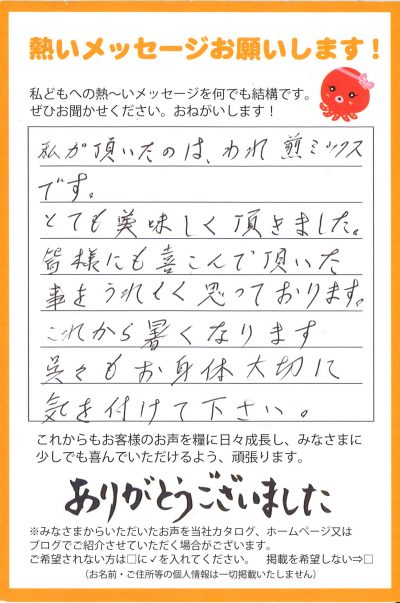 熱いメッセージお願いします！
私どもへの熱〜いメッセージを何でも結構です。
ぜひお聞かせください。おねがいします！
私が頂いたのは、われ煎ミックス
です。
とても美味しく頂きました。
皆様にも喜こんで頂いた
事をうれしく思っております。
これから暑くなります
呉々もお身体大切に
気を付けて下さい。
これからもお客様のお声を糧に日々成長し、みなさまに
少しでも喜んでいただけるよう、頑張ります。
ありがとうございました
※みなさまからいただいたお声を当社カタログ、ホームページ又は
ブログでご紹介させていただく場合がございます。
ご希望されない方は□に✓を入れてください。 掲載を希望しない⇒□
（お名前・ご住所等の個人情報は一切掲載いたしません）